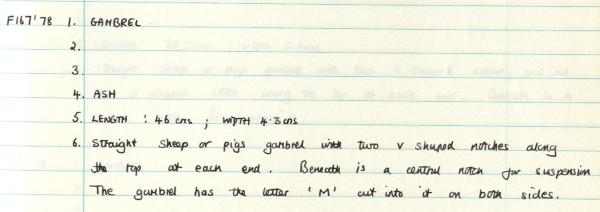 F167'78 1. GAMBREL
2.
3.
4. ASH
5. LENGTH : 46 cms ; WIDTH 4.3 cms
6. Straight sheep or pigs gambrel with two v shaped notches along
the top at each end. Beneath is a central notch for suspension
The gambrel has the letter 'M' cut into it on both sides.